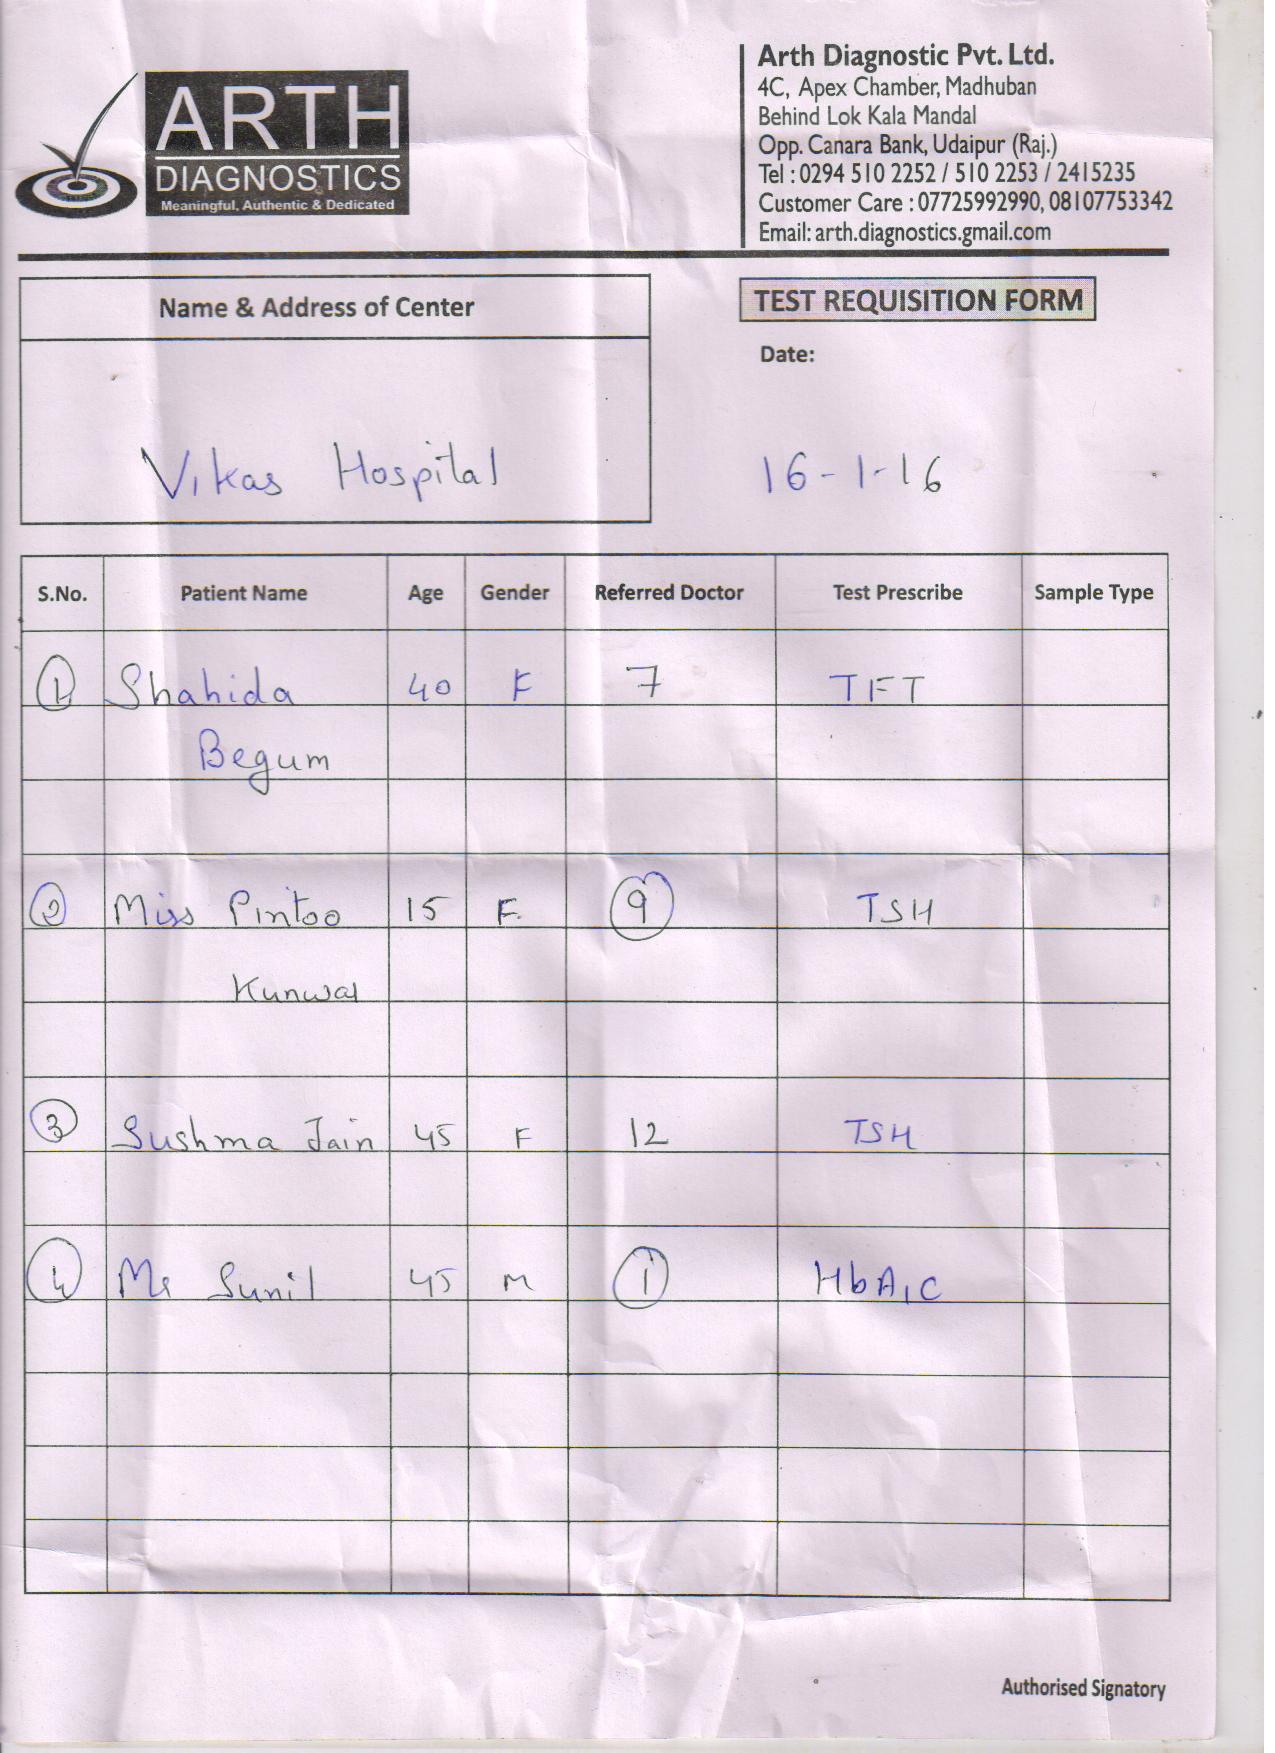 ARTH
DIAGNOSTICS
Meaningful, Authentic & Dedicated
Arth Diagnostic Pvt. Ltd.
4C, Apex Chamber, Madhuban
Behind Lok Kala Mandal
Opp. Canara Bank, Udaipur (Raj.)
Tel : 0294 510 2252 / 510 2253 / 2415235
Customer Care : 07725992990, 08107753342
Email: arth.diagnostics.gmail.com
Name & Address of Center
TEST REQUISITION FORM
Date:
Vikas Hospital
16-1-16
S.No. Patient Name Age Gender Referred Doctor Test Prescribe Sample Type
1 Shahida 40 F 7 TFT
Begum
2 Miss Pintoo 15 F 9 TSH
Kunwar
3 Sushma Jain 45 F 12 TSH
4 Mr Sunil 45 M 1 HbA1C
Authorised Signatory